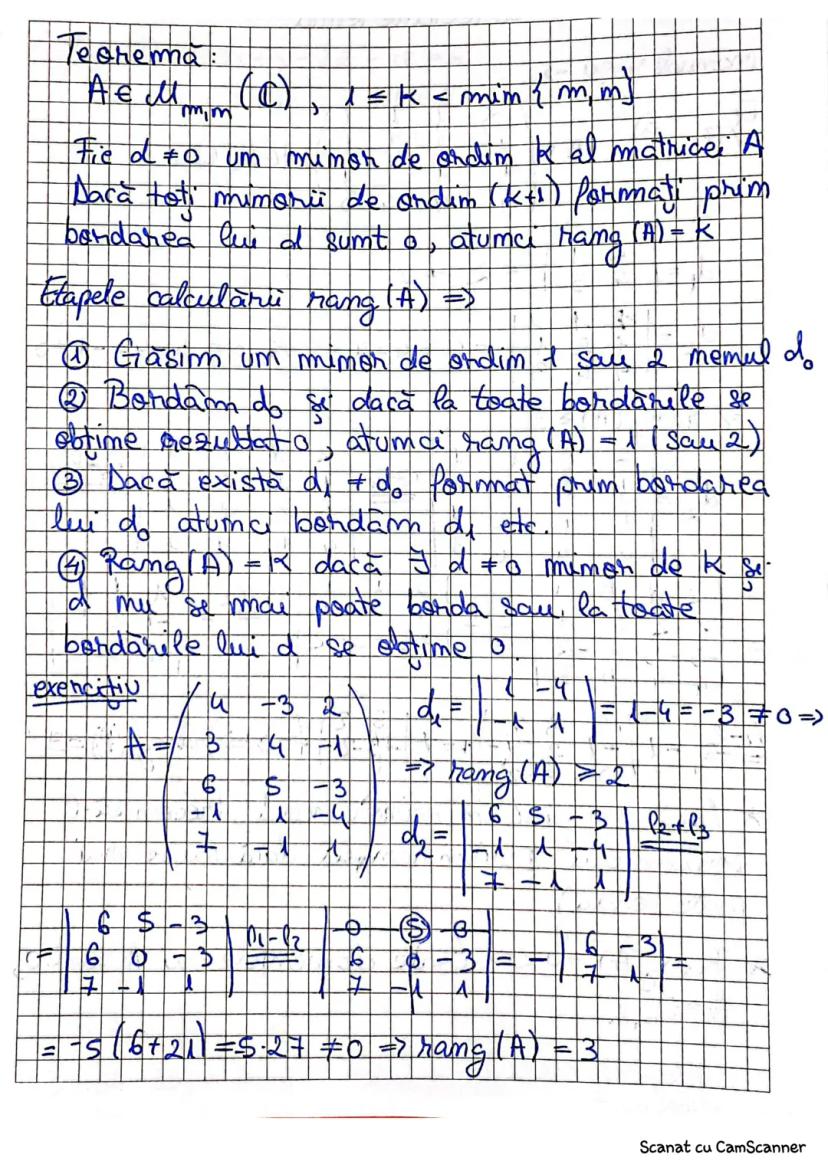 Teoremă:
A ∈ M_{m,n} (ℂ), 1 ≤ k < min { m, n }
Fie d ≠ 0 un minor de ordin k al matricei A
Dacă toți minorii de ordin (k+1) formați prin
bordarea lui d sunt 0, atunci rang (A) = k
Etapele calculării rang (A) ⇒
① Găsim un minor de ordin 1 sau 2 nenul d₀
② Bordăm d₀ și dacă la toate bordările se
obține rezultat 0, atunci rang (A) = 1 (sau 2)
③ Dacă există d₁ ≠ d₀ format prin bordarea
lui d₀ atunci bordăm d₁ etc.
④ Rang (A) = k dacă ∃ d ≠ 0 minor de k și
d nu se mai poate borda sau la toate
bordările lui d se obține 0
exercițiu
A = ( 4 -3 2
3 4 -1
6 5 -3
-1 1 -4
7 -1 1 )
d₁ = | 1 -4
-1 1 | = 1-4 = -3 ≠ 0 ⇒
⇒ rang (A) ≥ 2
d₂ = | 6 5 -3
-1 1 -4
7 -1 1 | l₂+l₃
= | 6 5 -3
6 0 -3
7 -1 1 | l₁-l₂ | 0 5 0
6 0 -3
7 -1 1 | = - | 6 -3
7 1 | =
= -5 (6+21) = 5·27 ≠ 0 ⇒ rang (A) = 3
Scanat cu CamScanner